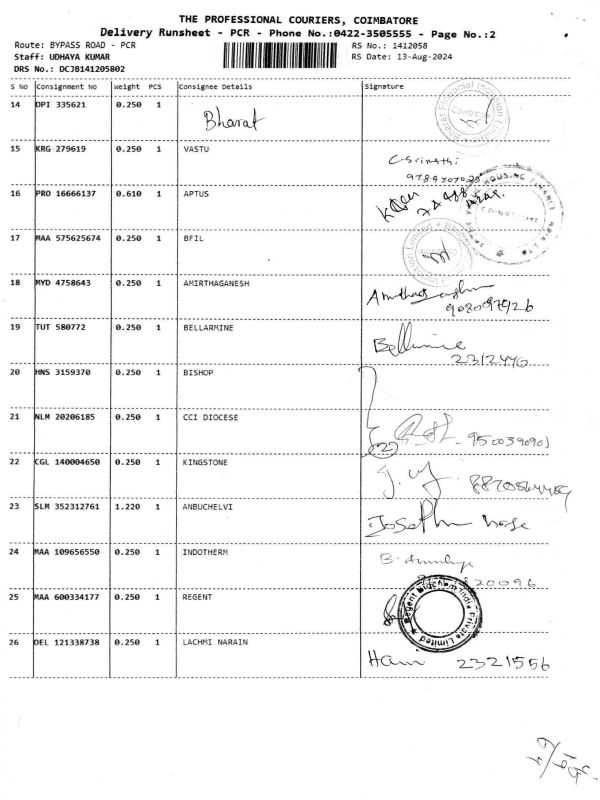 THE PROFESSIONAL COURIERS, COIMBATORE
Delivery Runsheet - PCR - Phone No.:0422-3505555 - Page No.:2
Route: BYPASS ROAD - PCR
RS No.: 1412058
Staff: UDHAYA KUMAR
RS Date: 13-Aug-2024
DRS No.: DCJB141205802
S No Consignment No Weight PCS Consignee Details Signature
14 DPI 335621 0.250 1 Bharat
15 KRG 279619 0.250 1 VASTU
16 PRO 16666137 0.610 1 APTUS
HOUSING FINANCE
17 MAA 575625674 0.250 1 BFIL
18 MYD 4758643 0.250 1 AMIRTHAGANESH
9080097926
19 TUT 580772 0.250 1 BELLARMINE
Bellarmine
2312440
20 HNS 3159370 0.250 1 BISHOP
21 NLM 20206185 0.250 1 CCI DIOCESE
(2) 9500390901
22 CGL 140004650 0.250 1 KINGSTONE
23 SLM 352312761 1.220 1 ANBUCHELVI
Joseph
24 MAA 109656550 0.250 1 INDOTHERM
20096
25 MAA 600334177 0.250 1 REGENT
Private Limited
26 DEL 121338738 0.250 1 LACHMI NARAIN
Hari 2321556